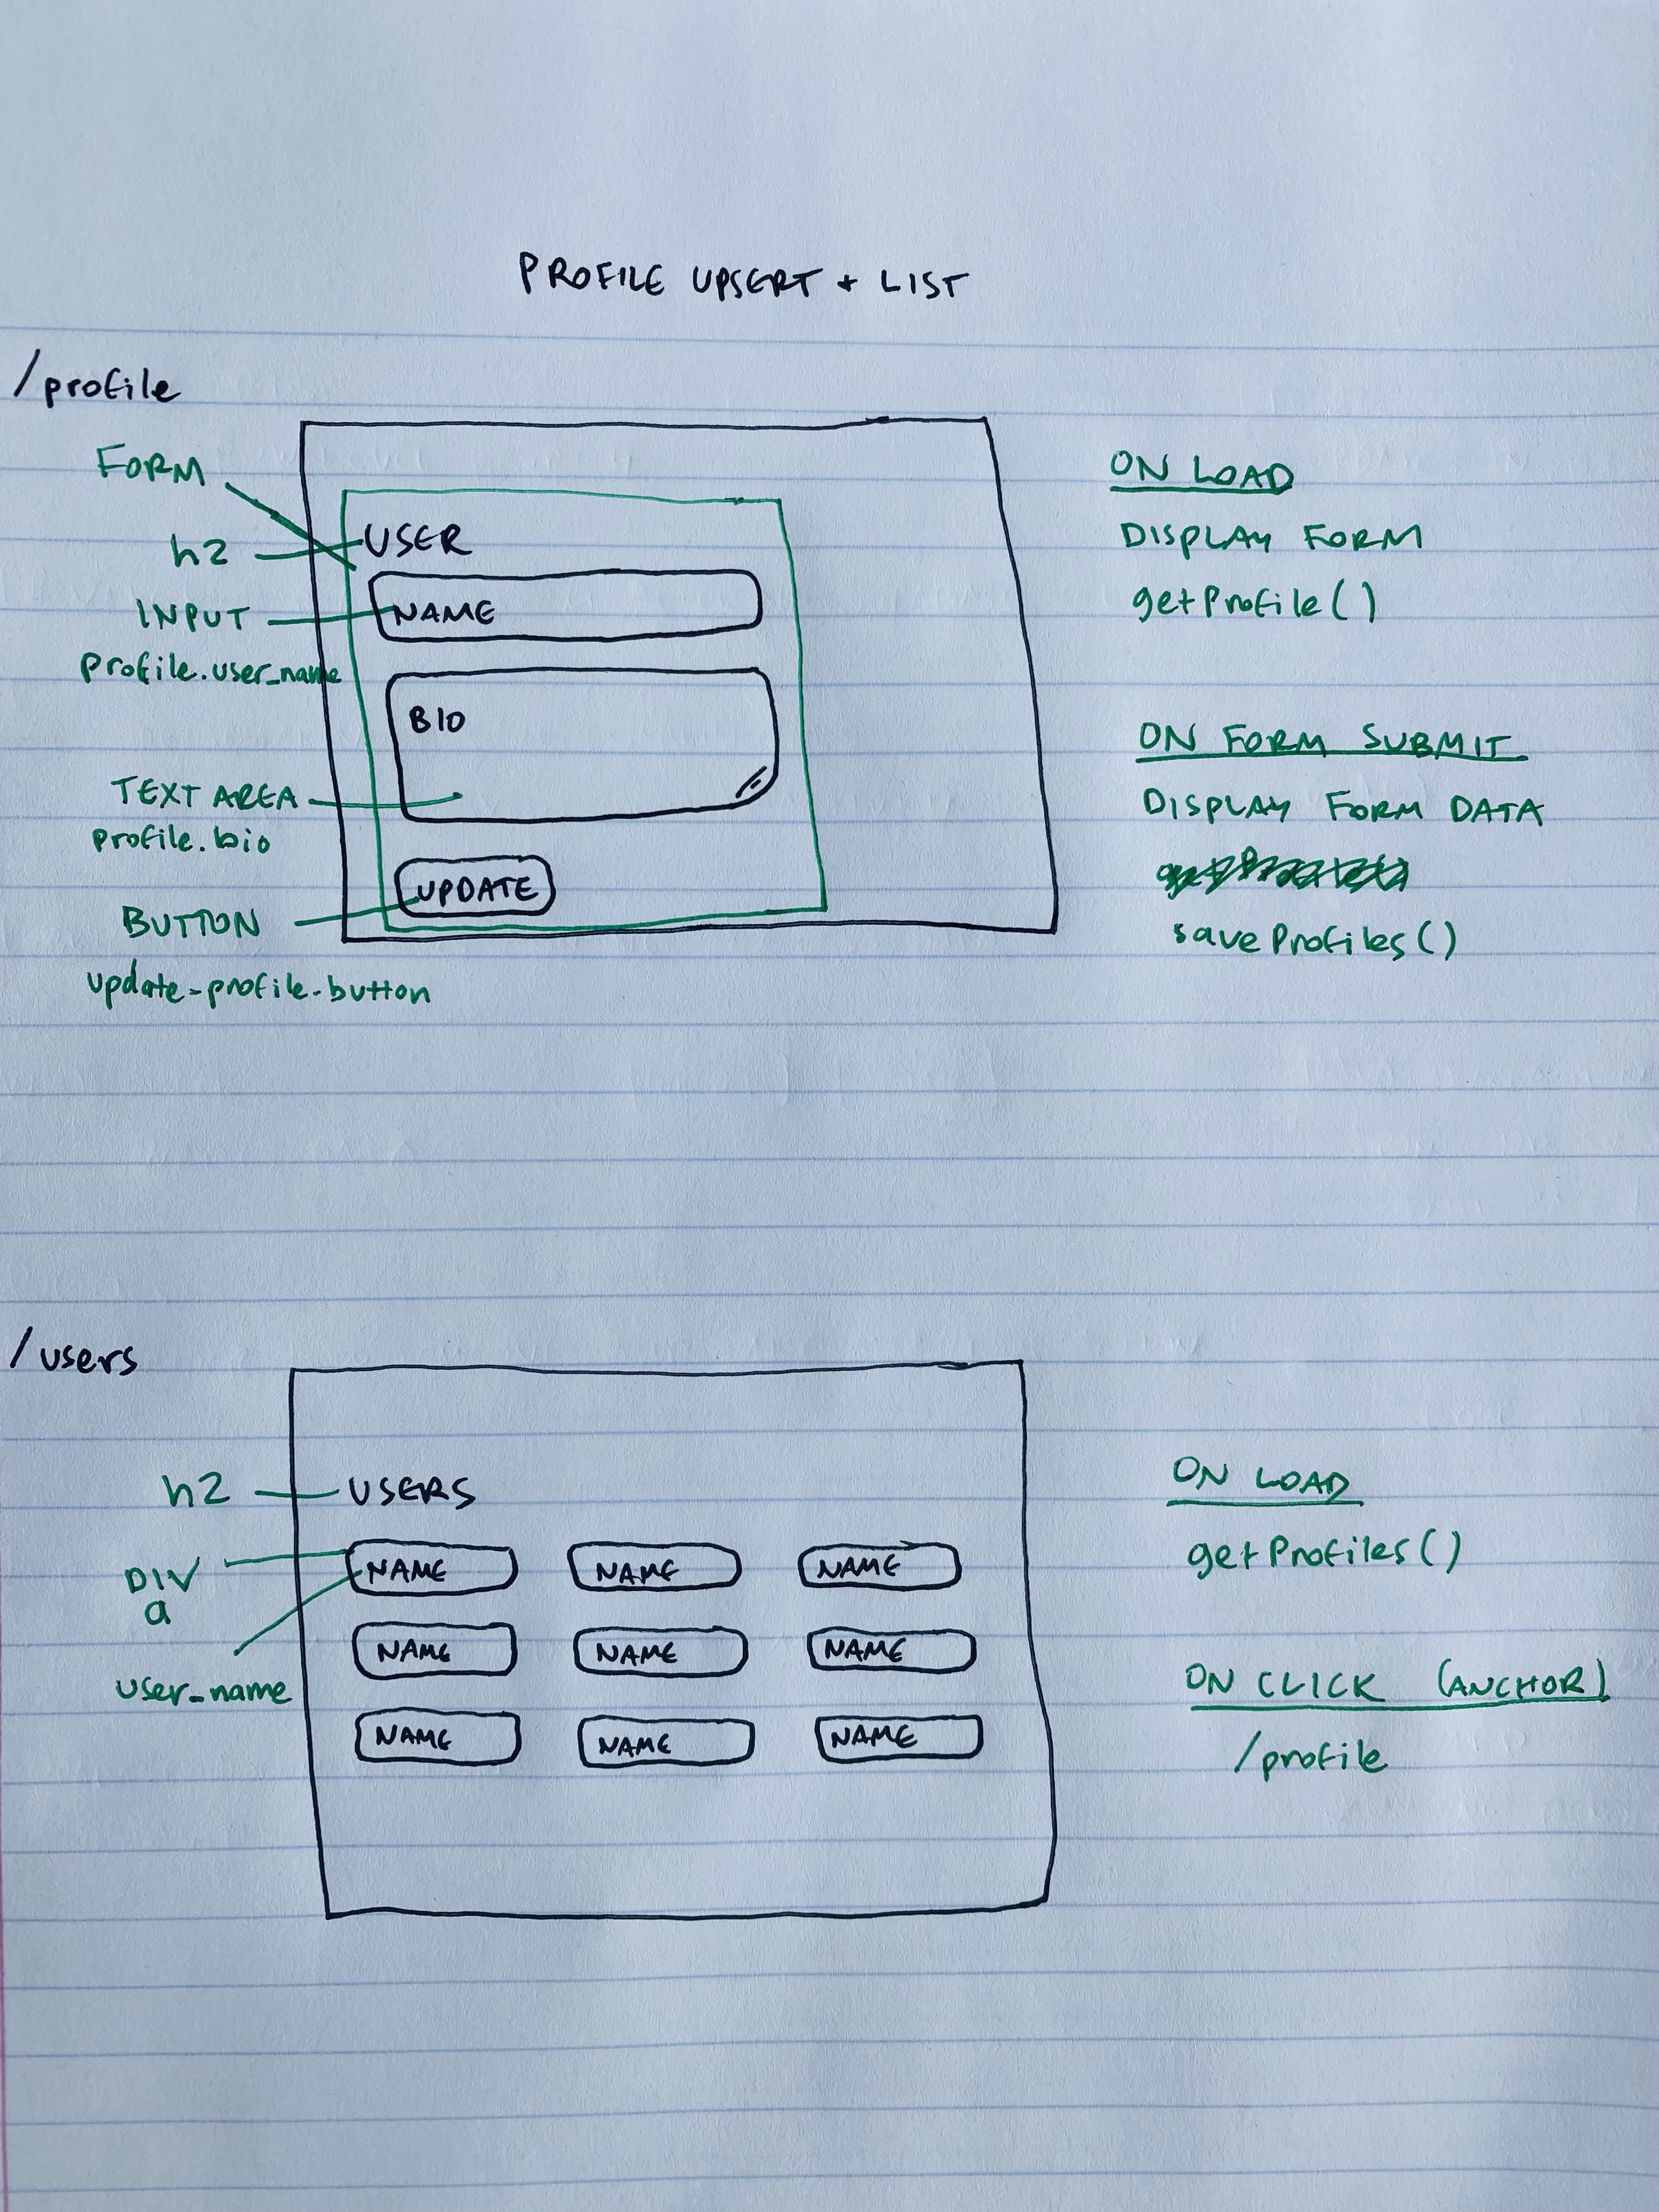 PROFILE UPSERT + LIST
/profile
FORM
h2
USER
INPUT
NAME
profile.user_name
BIO
TEXT AREA
profile.bio
UPDATE
BUTTON
update-profile-button
ON LOAD
DISPLAY FORM
getProfile()
ON FORM SUBMIT
DISPLAY FORM DATA
saveProfiles()
/users
h2
USERS
DIV
a
user_name
NAME NAME NAME
NAME NAME NAME
NAME NAME NAME
ON LOAD
getProfiles()
ON CLICK (ANCHOR)
/profile